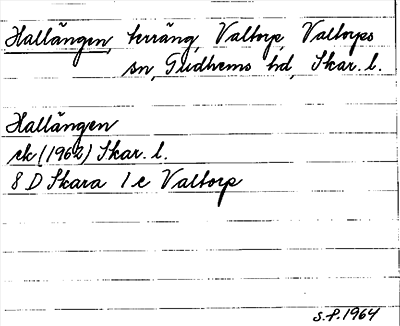 Hallängen, terräng, Valtorp, Valtorps
sn, Gudhems hd, Skar. l.
Hallängen
ek (1962) Skar. l.
8 D Skara 1 e Valtorp
S.P. 1964